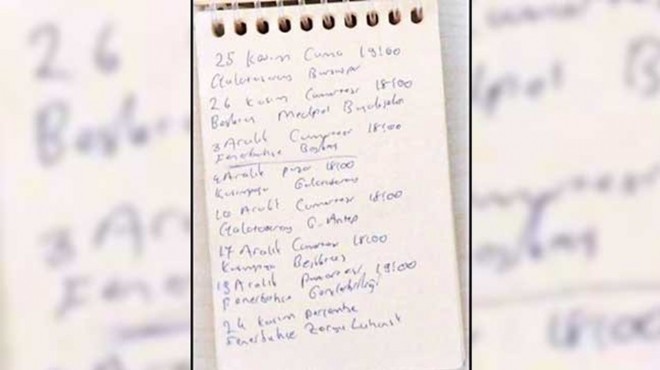 25 Kasım Cuma 19:00
Galatasaray Bursaspor
26 Kasım Cumartesi 18:00
Beşiktaş Medipol Başakşehir
3 Aralık Cumartesi 18:00
Fenerbahçe Beşiktaş
4 Aralık pazar 18:00
Kasımpaşa Galatasaray
10 Aralık Cumartesi 18:00
Galatasaray G-Antep
17 Aralık Cumartesi 18:00
Kasımpaşa Beşiktaş
19 Aralık 19:00
Fenerbahçe Gençlerbirliği
24 Kasım perşembe
Fenerbahçe Zorya Luhansk